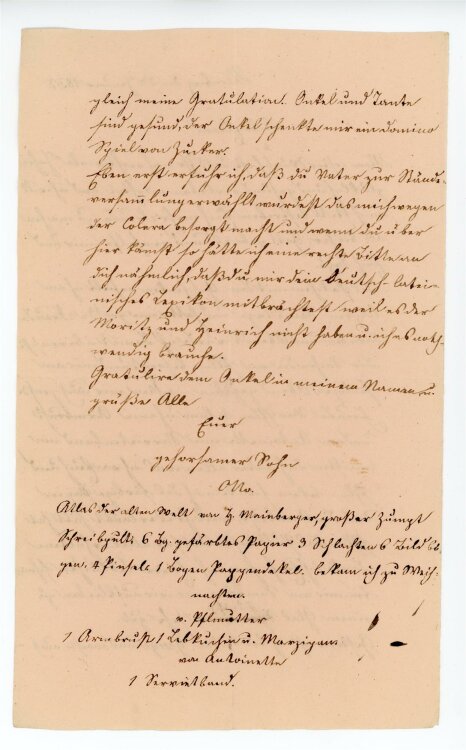 gleich meine Gratulation. Onkel und Tante
sind gesund, der Onkel schenkte mir ein domino
Spiel von Zucker.
Eben erst erfuhr ich, daß du Vater zur Stände-
versammlung erwählt wurdest das mich wegen
der Colera besorgt macht und wenn du über
hier kämst so hätte ich eine rechte Bitte an
dich nähmlich, daß du mir dein Deutsch-latei-
nisches Lexikon mitbrächtest weil es der
Moritz und Heinrich nicht haben u. ich es noth-
wendig brauche.
Gratulire dem Onkel in meinem Namen u.
grüße Alle
Euer
gehorsamer Sohn
Otto.
Atlas der alten Welt von Mainberger, großer Zumpt
Schreibpult 6 Bg. gefärbtes Papier 3 Schlachten 6 Bildbö-
gen, 4 Pinsel 1 Bogen Pappendekel, bekam ich zu Weih-
nachten.
v. Pflmutter
1 Armbrust 1 Lebkuchen u. Marzipan
von Antoinette
1 Servietband.